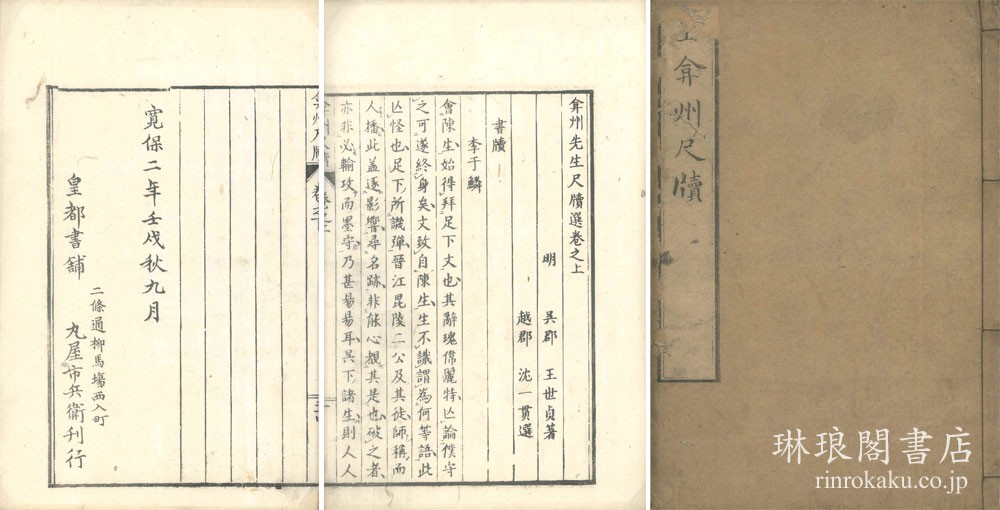 弇州先生尺牘選卷之上
明 吳郡 王世貞著
越郡 沈一貫選
書牘
李于鱗
會陳生始得拜足下文也其辭瑰偉麗特亾論僕守
之可遂終身矣文致自陳生生不識謂為何等語此
亾怪也足下所譏彈晉江毘陵二公及其徒師稱而
人播此盖逐影響尋名跡非能心覩其是也破之者
亦非必輸攻而墨守乃甚易易耳吳下諸生則人人
弇州尺牘 卷之
寛保二年壬戌秋九月
皇都書舗
二條通柳馬塲西入町
丸屋市兵衛刊行
弇州尺牘
琳琅閣書店
rinrokaku.co.jp